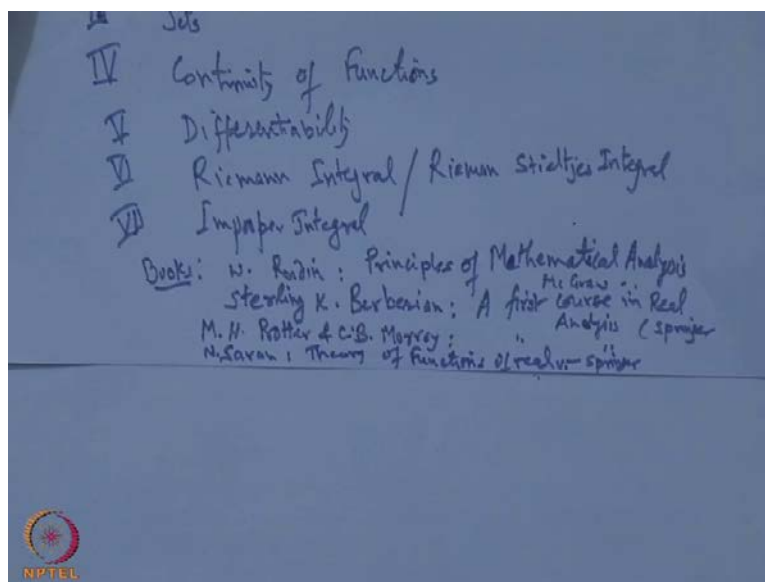 III Sets
IV Continuity of Functions
V Differentiability
VI Riemann Integral / Rieman Stieltjes Integral
VII Improper Integral
Books: W. Rudin: Principles of Mathematical Analysis
Mc Graw..
Sterling K. Berberian: A first course in Real
Analysis (springer
M. H. Protter & C.B. Morrey: " "
N. Saran: Theory of Functions of real v.- springer
NPTEL